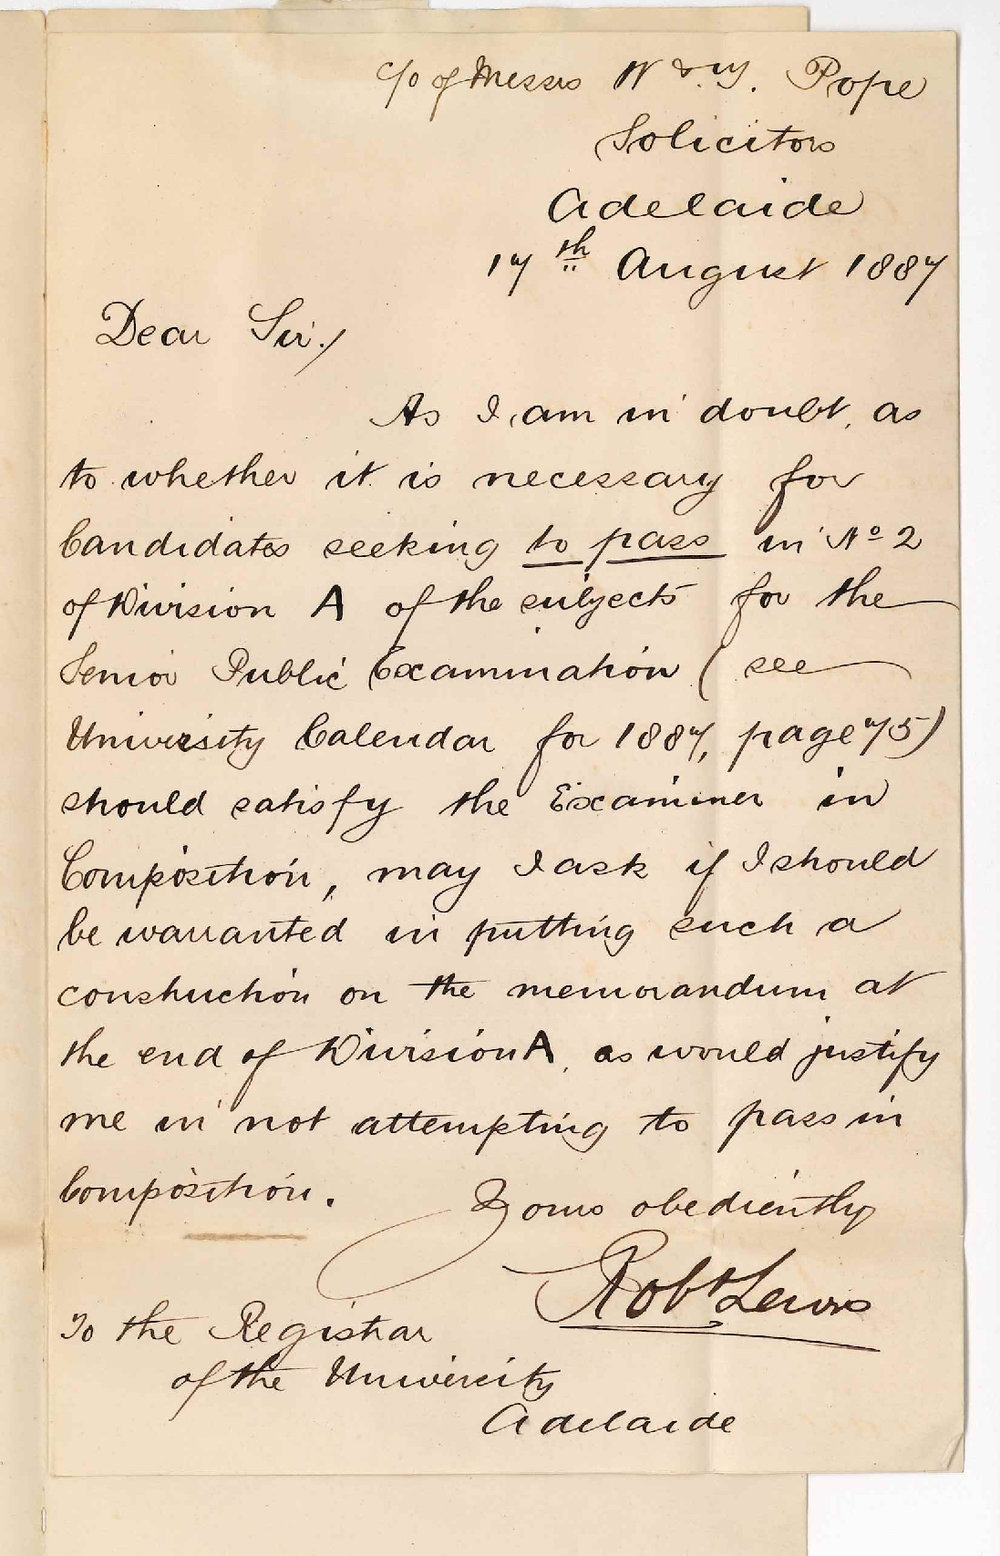 c/o of Messrs W & W. Pope
Solicitors
Adelaide
17th August 1887
Dear Sir/
As I am in doubt, as
to whether it is necessary for
Candidates seeking to pass in No 2
of Division A of the subjects for the
Senior Public Examination (see
University Calendar for 1887, page 75)
should satisfy the Examiner in
Composition, may I ask if I should
be warranted in putting such a
construction on the memorandum at
the end of Division A, as would justify
me in not attempting to pass in
Composition.
Yours obediently
Robt Lewis
To the Registrar
of the University
Adelaide